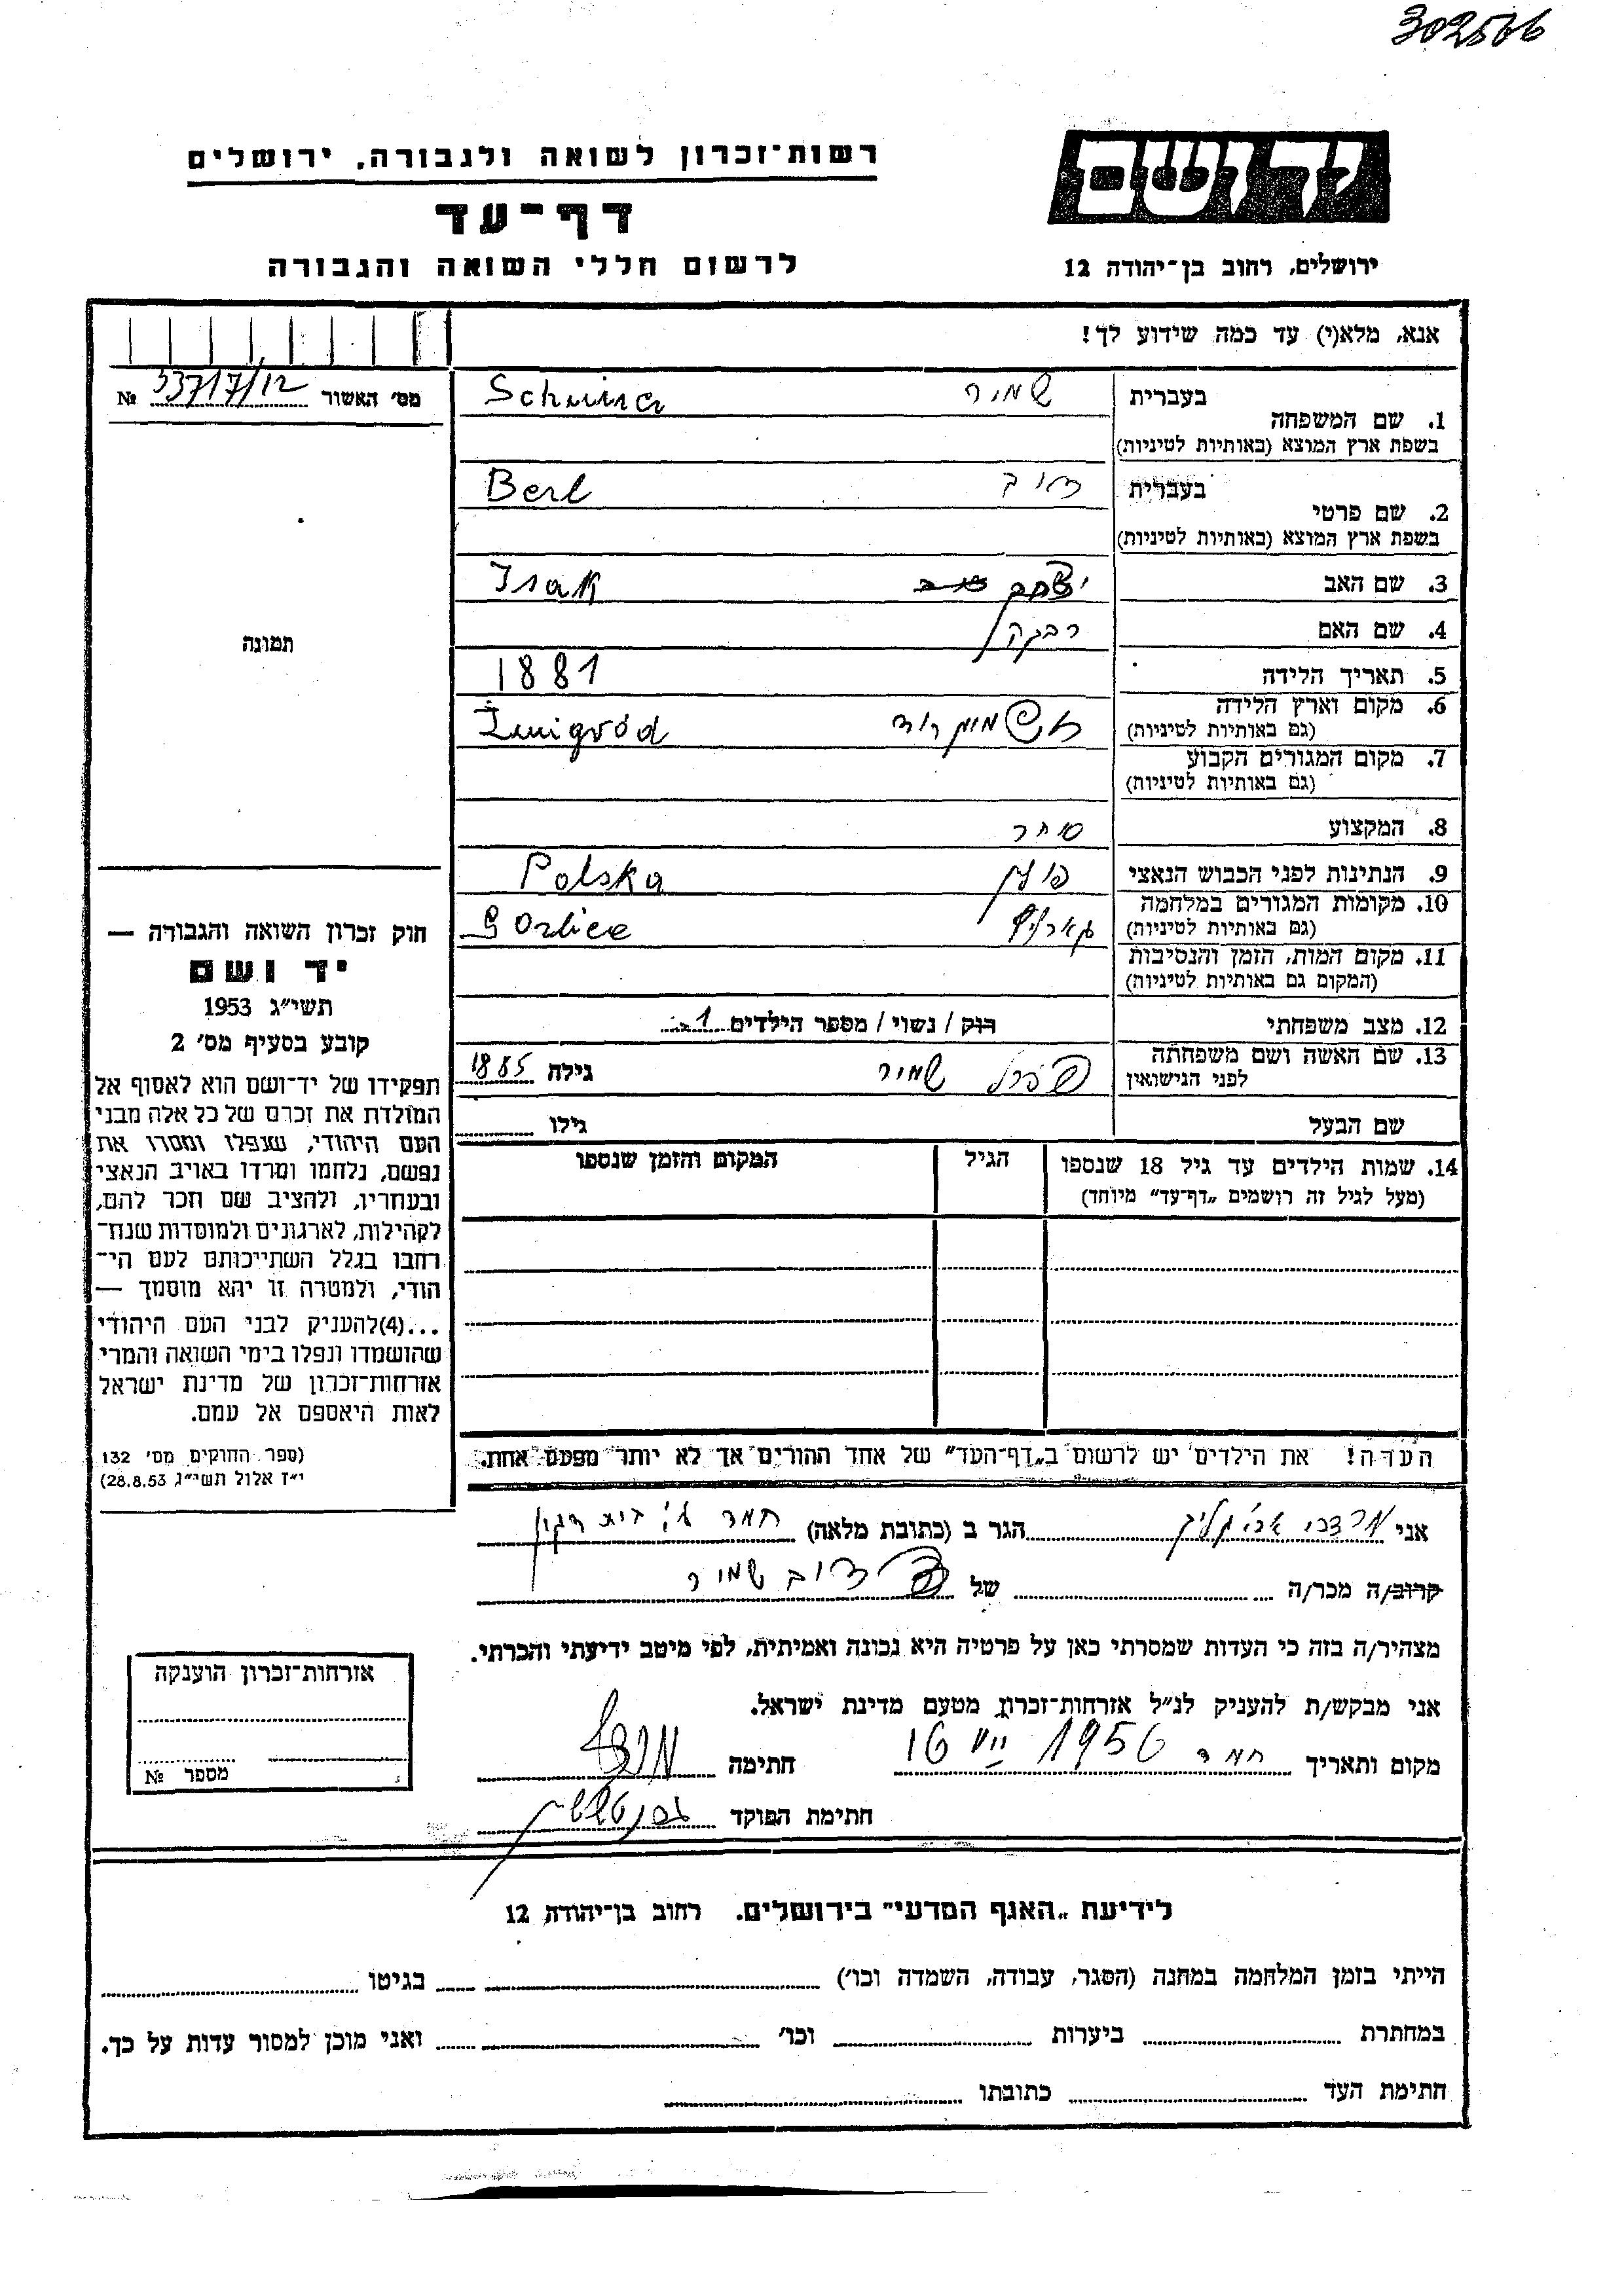 302566
רשות־זכרון לשואה ולגבורה, ירושלים
יד ושם
דף־עד
לרשום חללי השואה והגבורה
ירושלים, רחוב בן־יהודה 12
אנא, מלא(י) עד כמה שידוע לך!
מס׳ האשור 53717/12 №
בעברית שמיר
1. שם המשפחה
בשפת ארץ המוצא (באותיות לטיניות)
בעברית דוב Berl
2. שם פרטי
בשפת ארץ המוצא (באותיות לטיניות)
3. שם האב יצחק Isak
4. שם האם רבקה
תמונה
5. תאריך הלידה 1881
6. מקום וארץ הלידה Żmigród
(גם באותיות לטיניות)
7. מקום המגורים הקבוע
(גם באותיות לטיניות)
8. המקצוע סוחר
9. הנתינות לפני הכבוש הנאצי פולין Polska
10. מקומות המגורים במלחמה
(גם באותיות לטיניות) גארליץ Gorlice
11. מקום המות, הזמן והנסיבות
(המקום גם באותיות לטיניות)
12. מצב משפחתי רוק / נשוי / מספר הילדים 1
13. שם האשה ושם משפחתה
לפני הנישואין שמיר גילה 1885
שם הבעל גילו
14. שמות הילדים עד גיל 18 שנספו הגיל המקום והזמן שנספו
(מעל לגיל זה רושמים „דף־עד” מיוחד)
הערה! את הילדים יש לרשום ב„דף־העד” של אחד ההורים אך לא יותר מפעם אחת.
חוק זכרון השואה והגבורה —
יד ושם
תשי״ג 1953
קובע בסעיף מס׳ 2
תפקידו של יד־ושם הוא לאסוף אל
המולדת את זכרם של כל אלה מבני
העם היהודי, שנפלו ומסרו את
נפשם, נלחמו ומרדו באויב הנאצי
ובעוזריו, ולהציב שם וזכר להם,
לקהילות, לארגונים ולמוסדות שנח־
רבו בגלל השתייכותם לעם הי־
הודי, ולמטרה זו יהא מוסמך —
...(4)להעניק לבני העם היהודי
שהושמדו ונפלו בימי השואה והמרי
אזרחות־זכרון של מדינת ישראל
לאות היאספם אל עמם.
(ספר החוקים מס׳ 132
י״ז אלול תשי״ג 28.8.53)
אני מרדכי הגר ב (כתובת מלאה) חמד בית דגון
קרוב/ה מכר/ה של דוב שמיר
מצהיר/ה בזה כי העדות שמסרתי כאן על פרטיה היא נכונה ואמיתית, לפי מיטב ידיעתי והכרתי.
אני מבקש/ת להעניק לנ״ל אזרחות־זכרון מטעם מדינת ישראל.
מקום ותאריך חמד 1956 חתימה
חתימת הפוקד
אזרחות־זכרון הוענקה
מספר №
לידיעת „האגף המדעי” בירושלים. רחוב בן־יהודה 12
הייתי בזמן המלחמה במחנה (הסגר, עבודה, השמדה וכו׳) בגיטו
במחתרת ביערות וכו׳ ואני מוכן למסור עדות על כך.
חתימת העד כתובתו